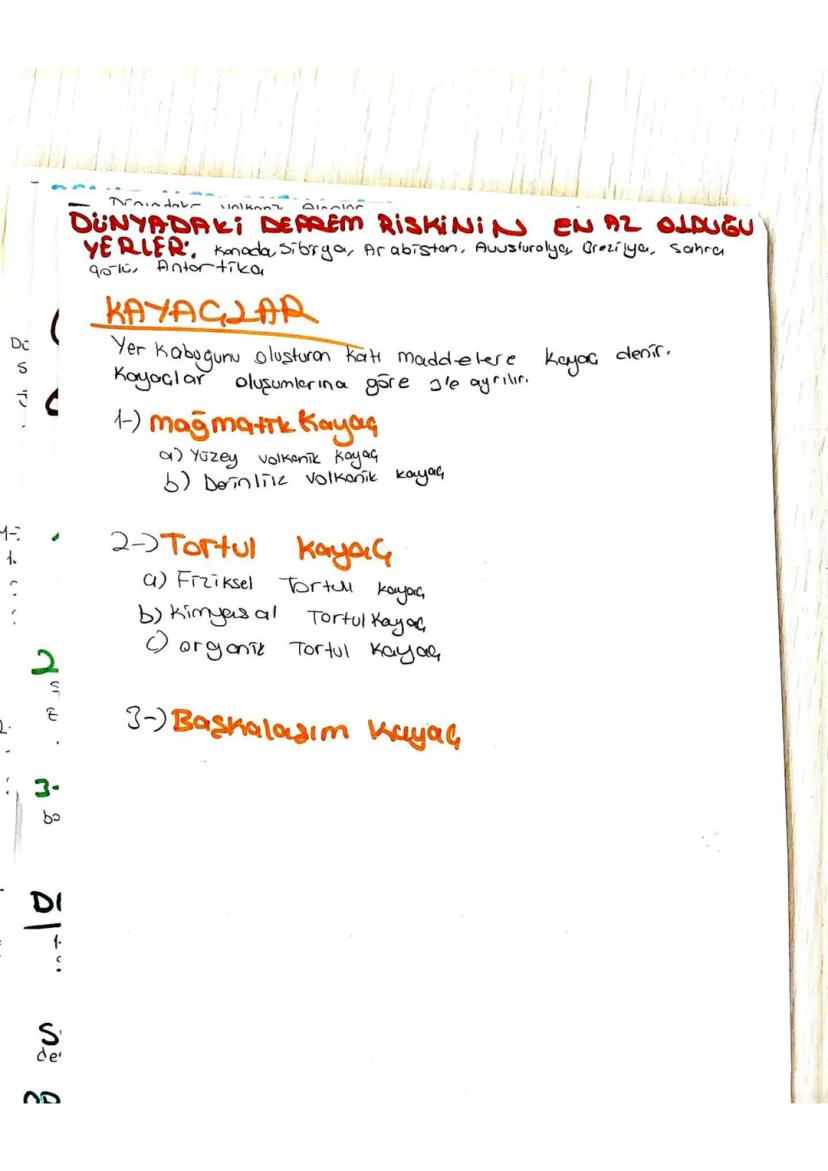 DÜNYADAKİ DEPREM RİSKİNİN EN AZ OLDUĞU
YERLER: Kanada, Sibirya, Arabistan, Avusturalya, Brezilya, Sahra
çölü, Antartika
KAYAÇLAR
Yer Kabuğunu oluşturan katı maddelere kayaç denir.
Kayaçlar oluşumlarına göre 3'e ayrılır.
1-) mağmatik Kayaç
a) Yüzey volkanik kayaç
b) Derinlik volkanik kayaç
2-) Tortul kayaç
a) Fiziksel Tortul kayaç
b) Kimyasal Tortul kayaç
c) organik Tortul kayaç
3-) Başkalaşım kayaç